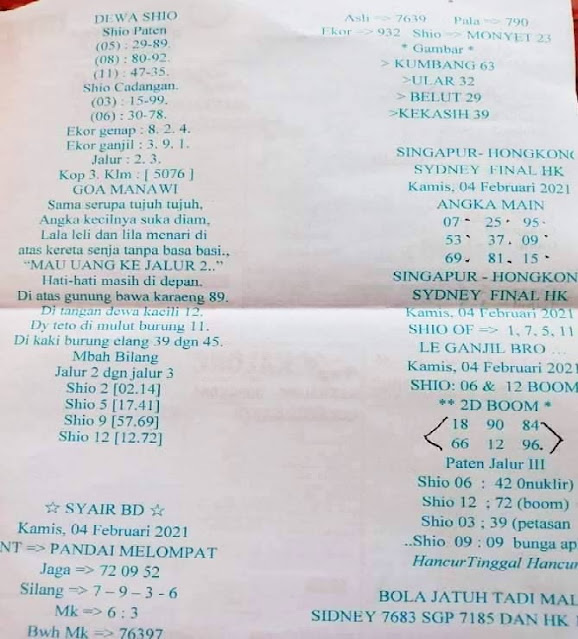 DEWA SHIO
Shio Paten
(05) : 29-89.
(08) : 80-92.
(11) : 47-35.
Shio Cadangan.
(03) : 15-99.
(06) : 30-78.
Ekor genap : 8. 2. 4.
Ekor ganjil : 3. 9. 1.
Jalur : 2. 3.
Kop 3. Klm : [ 5076 ]
GOA MANAWI
Sama serupa tujuh tujuh,
Angka kecilnya suka diam,
Lala leli dan lila menari di
atas kereta senja tanpa basa basi.,
“MAU UANG KE JALUR 2..”
Hati-hati masih di depan.
Di atas gunung bawa karaeng 89.
Di tangan dewa kacili 12.
Dy teto di mulut burung 11.
Di kaki burung elang 39 dgn 45.
Mbah Bilang
Jalur 2 dgn jalur 3
Shio 2 [02.14]
Shio 5 [17.41]
Shio 9 [57.69]
Shio 12 [12.72]
☆ SYAIR BD ☆
Kamis, 04 Februari 2021
NT => PANDAI MELOMPAT
Jaga => 72 09 52
Silang => 7 – 9 – 3 - 6
Mk => 6 : 3
Bwh Mk => 76397
Asli => 7639 Pala => 790
Ekor => 932 Shio => MONYET 23
* Gambar *
> KUMBANG 63
>ULAR 32
> BELUT 29
>KEKASIH 39
SINGAPUR- HONGKONG
SYDNEY FINAL HK
Kamis, 04 Februari 2021
ANGKA MAIN
07 25 95
53 37 09
69 81 15
SINGAPUR - HONGKON
SYDNEY FINAL HK
Kamis, 04 Februari 2021
SHIO OF => 1, 7, 5, 11
LE GANJIL BRO ...
Kamis, 04 Februari 2021
SHIO: 06 & 12 BOOM
** 2D BOOM *
18 90 84
66 12 96
Paten Jalur III
Shio 06 : 42 0nuklir)
Shio 12 ; 72 (boom)
Shio 03 ; 39 (petasan
..Shio 09 : 09 bunga ap
HancurTinggal Hancur
BOLA JATUH TADI MAL
SIDNEY 7683 SGP 7185 DAN HK